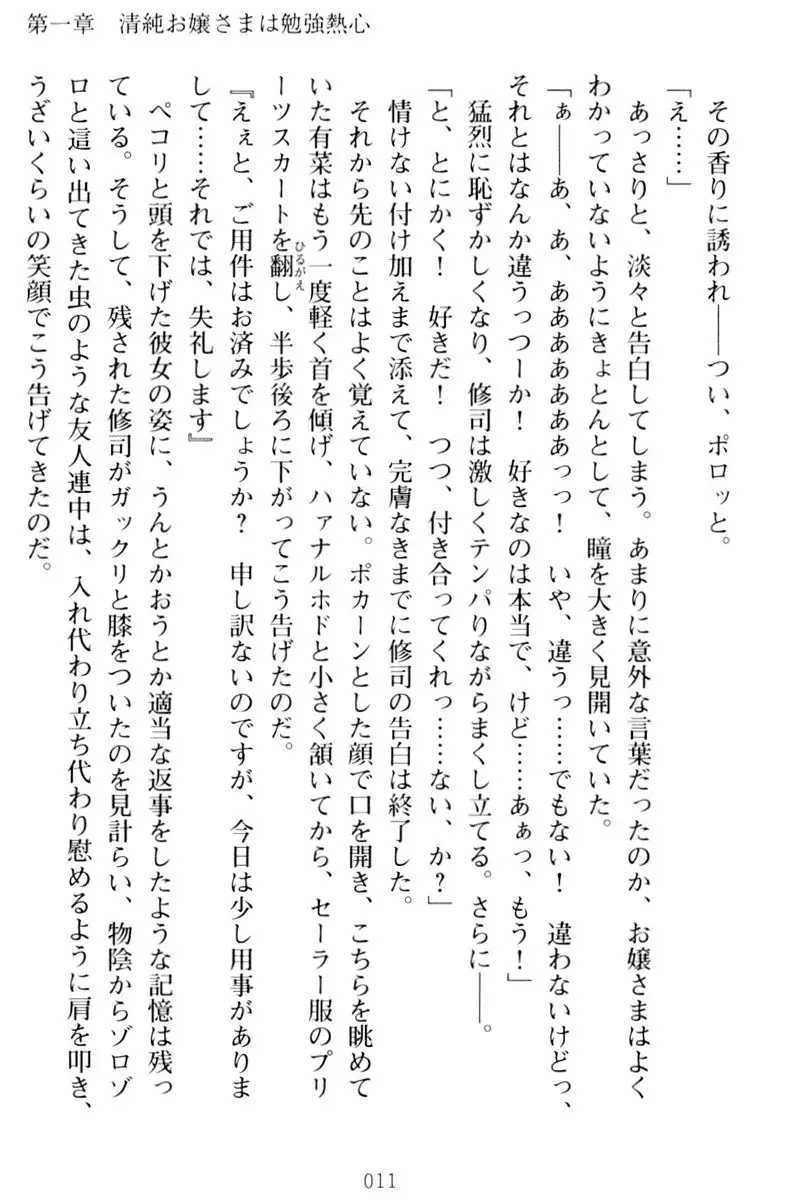 第一章　清純お嬢さまは勉強熱心
その香りに誘われ――つい、ポロッと。
「え……」
あっさりと、淡々と告白してしまう。あまりに意外な言葉だったのか、お嬢さまはよく
わかっていないようにきょとんとして、瞳を大きく見開いていた。
「ぁ――あ、あ、ああああああぁっっ！　いや、違うっ……でもない！　違わないけどっ、
それとはなんか違うっつーか！　好きなのは本当で、けど……あぁっ、もう！」
猛烈に恥ずかしくなり、修司は激しくテンパりながらまくし立てる。さらに――。
「と、とにかく！　好きだ！　つつ、付き合ってくれっ……ない、か？」
情けない付け加えまで添えて、完膚なきまでに修司の告白は終了した。
それから先のことはよく覚えていない。ポカーンとした顔で口を開き、こちらを眺めて
いた有菜はもう一度軽く首を傾げ、ハァナルホドと小さく頷いてから、セーラー服のプリ
ーツスカートを翻し、半歩後ろに下がってこう告げたのだ。
ひるがえ
『えぇと、ご用件はお済みでしょうか？　申し訳ないのですが、今日は少し用事がありま
して……それでは、失礼します』
ペコリと頭を下げた彼女の姿に、うんとかおうとか適当な返事をしたような記憶は残っ
ている。そうして、残された修司がガックリと膝をついたのを見計らい、物陰からゾロゾ
ロと這い出てきた虫のような友人連中は、入れ代わり立ち代わり慰めるように肩を叩き、
うざいくらいの笑顔でこう告げてきたのだ。
011